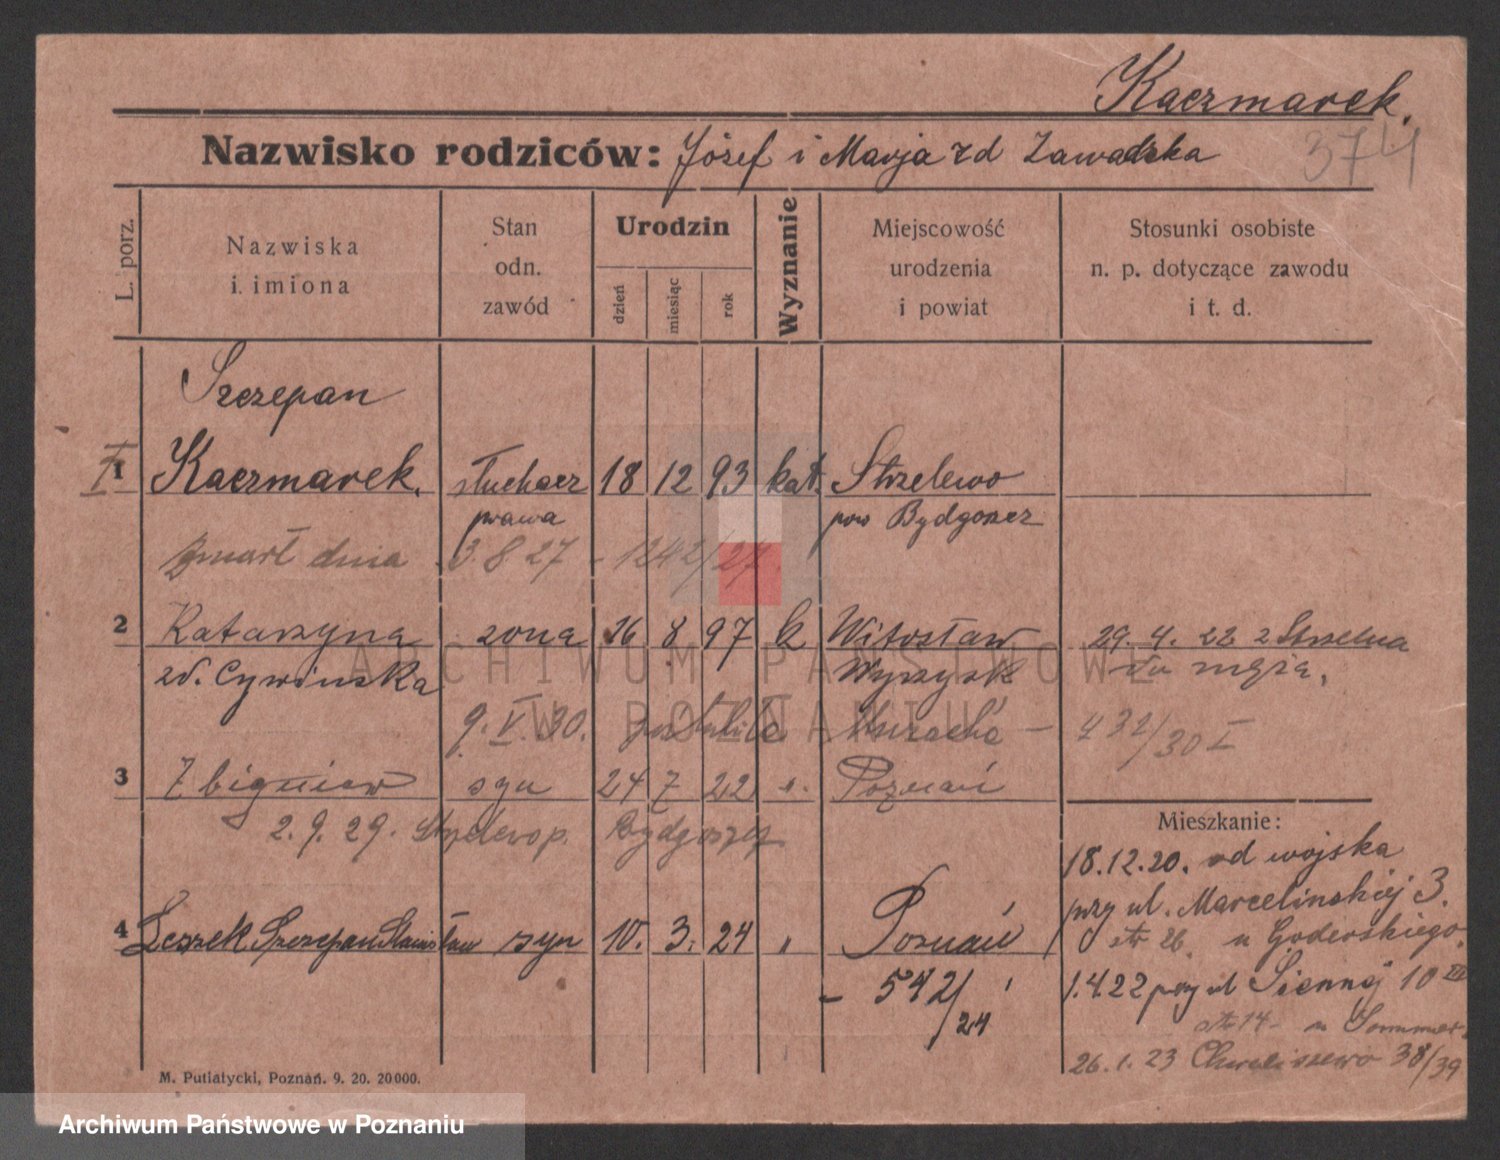 Kaczmarek.
Nazwisko rodziców: Józef i Marja zd Zawadzka
374
L. porz.
Nazwiska
i. imiona
Stan
odn.
zawód
Urodzin
dzień
miesiąc
rok
Wyznanie
Miejscowość
urodzenia
i powiat
Stosunki osobiste
n. p. dotyczące zawodu
i t. d.
Szczepan
1 Kaczmarek. słuchacz 18 12 93 kat. Strzelewo
prawa pow Bydgoszcz
Zmarł dnia 3.8.27 - 1242/27.
2 Katarzyna żona 26 8 97 k Witosław 29.4.22 z Strzelna
zd. Cywińska Wyrzysk do męża.
9.V.30. 432/30 I
3 Zbigniew syn 24 7 22 ". Poznań
2.9.29. Strzelewo p. Bydgoszcz
Mieszkanie:
18.12.20. od wojska
przy ul. Marcelińskiej 3.
4 Leszek Szczepan Stanisław syn 10. 3. 24 " Poznań
str 26 u Goderskiego.
- 542/24
1.4.22 przy ul Siennej 10 III
str 14 - u Sommer.
26.1.23 Chwaliszewo 38/39
M. Putiatycki, Poznań. 9. 20. 20000.
ARCHIWUM PAŃSTWOWE
W POZNANIU
Archiwum Państwowe w Poznaniu